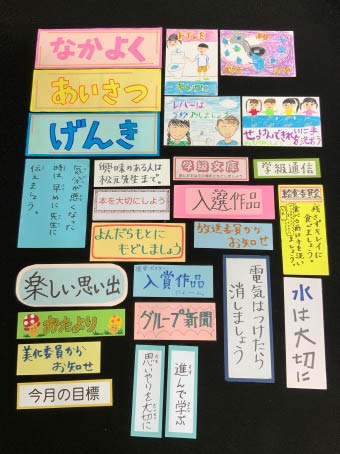 なかよく
あいさつ
げんき
トイレを
レバーは
せっけんできれいに手
を洗おう
気分が悪くなった
時は早めに先生に
伝えましょう。
興味のある人は
松元先生まで。
本を大切にしよう
学級文庫
学級通信
入選作品
給食委員会
残さずキレイに
食べましょう。
食べる前は手を洗い
よんだらもとに
もどしましょう
放送委員から
お知らせ
楽しい思い出
入賞作品
電気はつけたら
消しましょう
水は大切に
おたより
グループ新聞
美化委員から
お知らせ
今月の目標
思いやりを大切に
進んで学ぶ